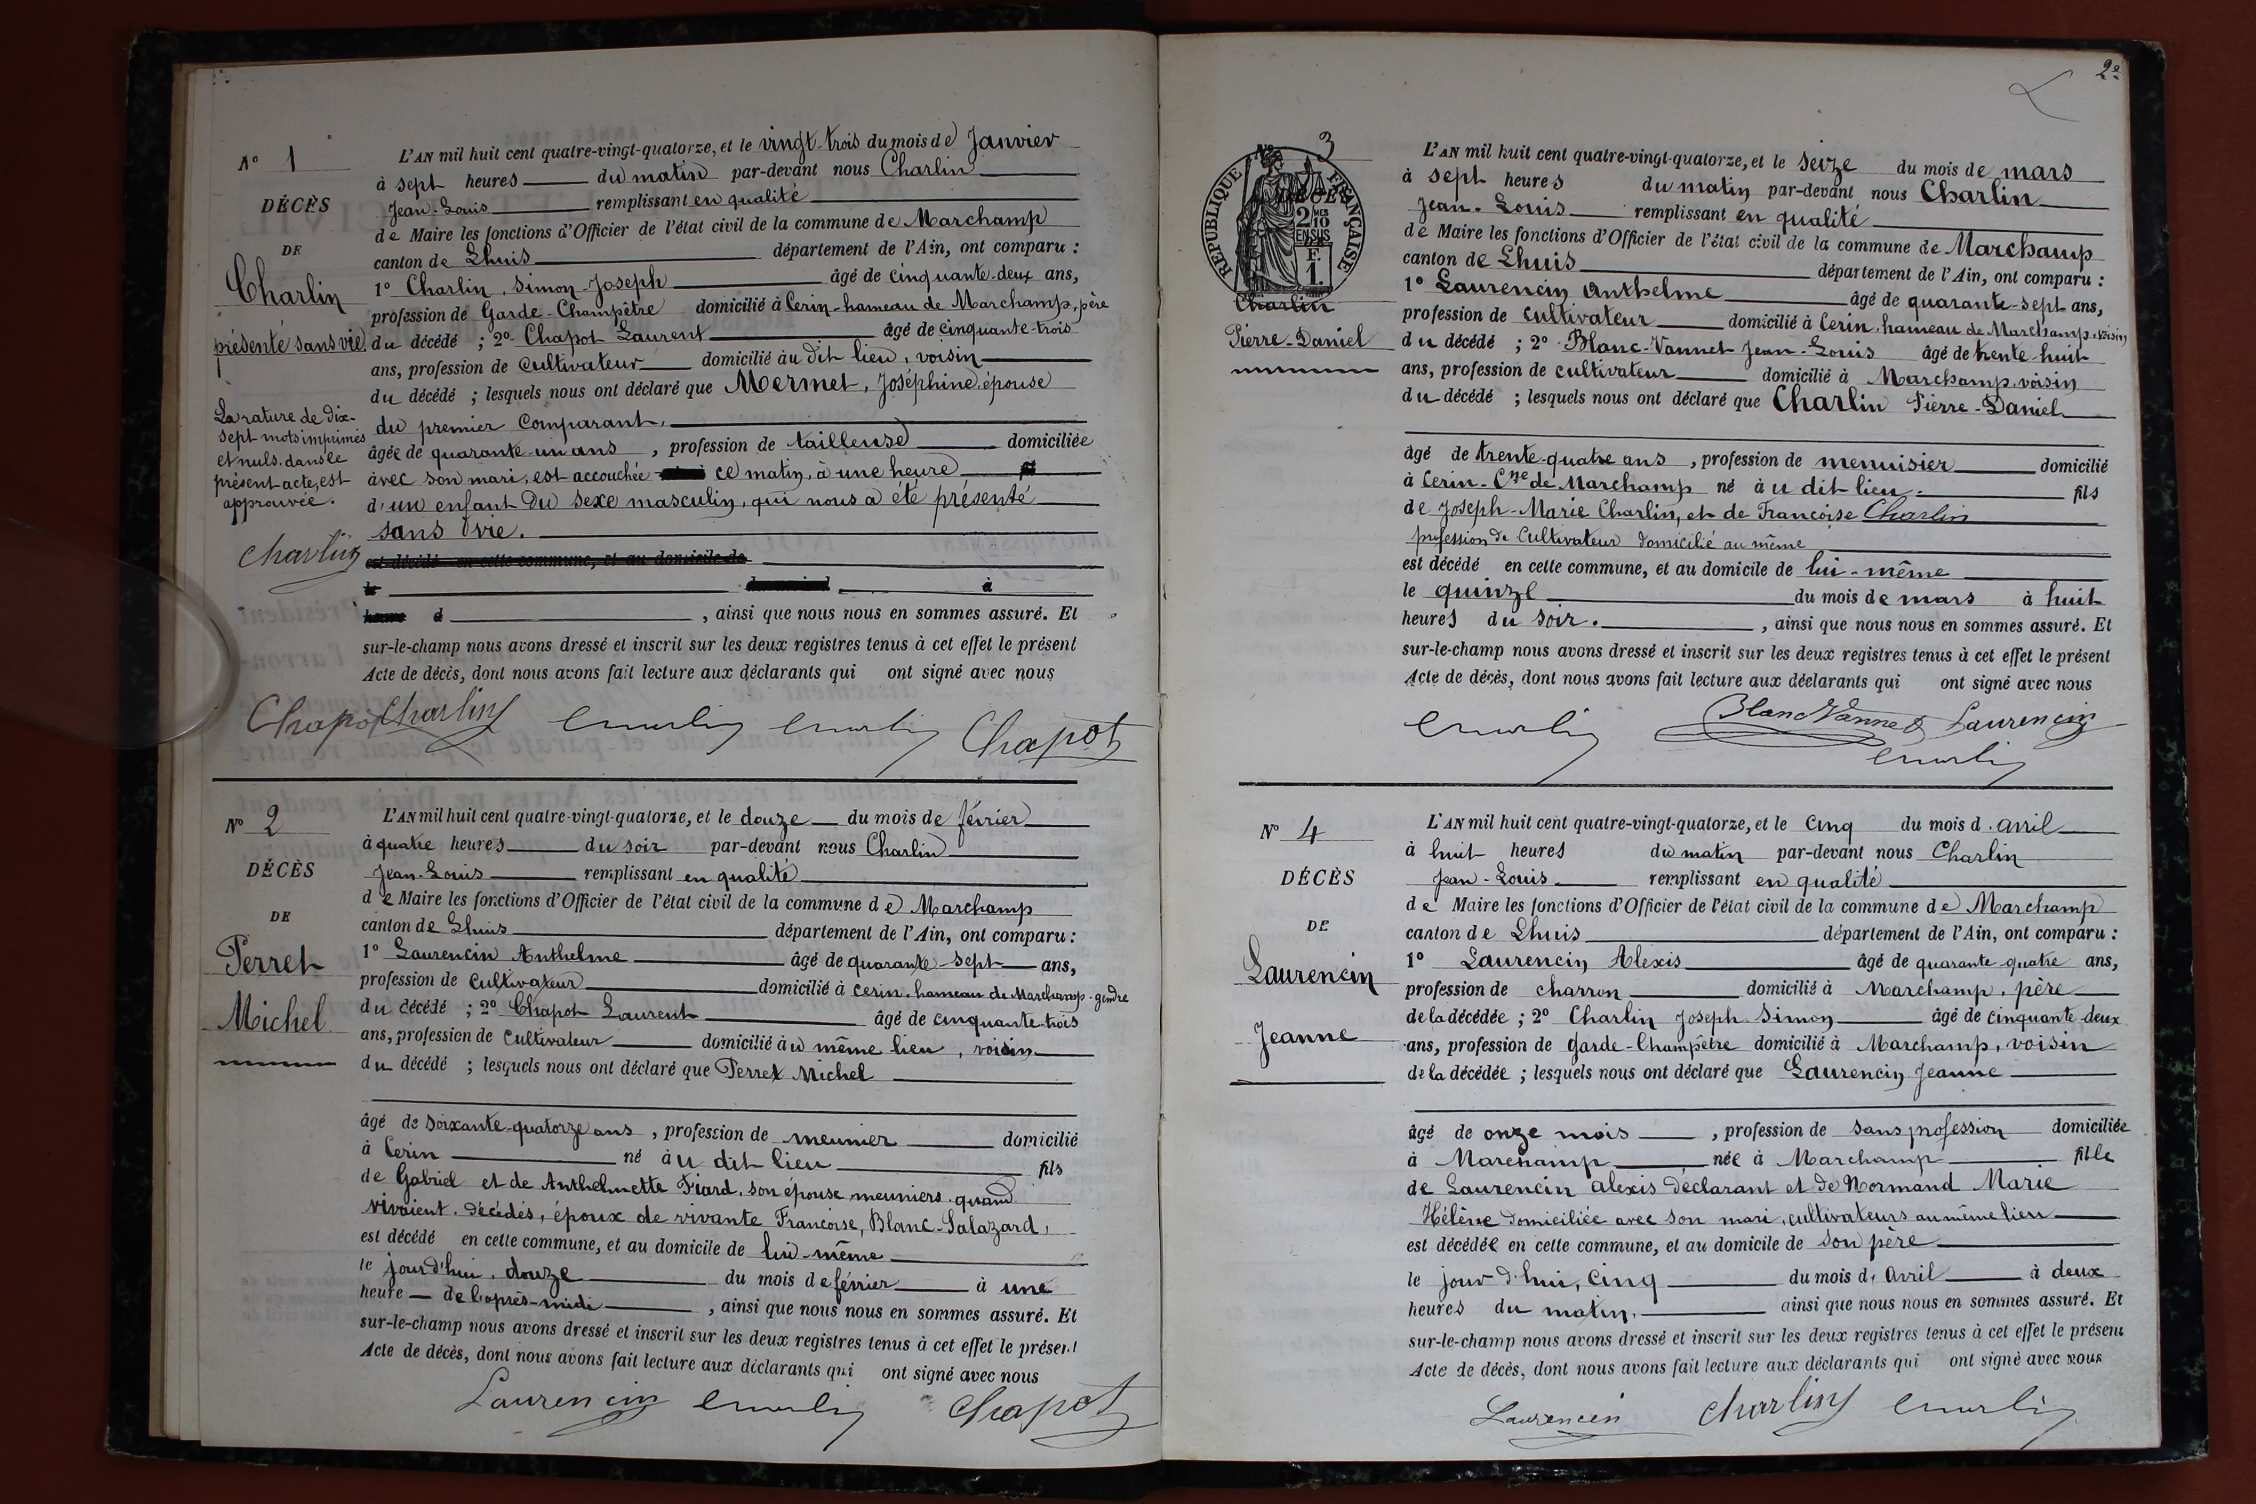 N° 1
DÉCÈS
DE
Charlin
présenté sans vie.
La rature de dix-
sept mots imprimés
et nuls, dans le
présent acte, est
approuvée.
Charlin
L'AN mil huit cent quatre-vingt-quatorze, et le vingt-trois du mois de Janvier
à sept heures du matin par-devant nous Charlin
Jean-Louis remplissant en qualité
de Maire les fonctions d'Officier de l'état civil de la commune de Marchamp
canton de Lhuis département de l'Ain, ont comparu :
1° Charlin, Simon-Joseph âgé de cinquante-deux ans,
profession de Garde-Champêtre domicilié à Cerin-hameau de Marchamp, père
du décédé ; 2° Chapot Laurent âgé de cinquante-trois
ans, profession de cultivateur domicilié au dit lieu, voisin
du décédé ; lesquels nous ont déclaré que Mermet, Joséphine, épouse
du premier comparant,
âgée de quarante-un ans , profession de tailleuse domiciliée
avec son mari, est accouchée ce matin, à une heure
d'un enfant du sexe masculin, qui nous a été présenté
sans vie.
est décédé en cette commune, et au domicile de
le du mois d à
heure d , ainsi que nous nous en sommes assuré. Et
sur-le-champ nous avons dressé et inscrit sur les deux registres tenus à cet effet le présent
Acte de décès, dont nous avons fait lecture aux déclarants qui ont signé avec nous
Chapot Charlin Charlin Charlin Chapot
N° 2
DÉCÈS
DE
Perret
Michel
L'AN mil huit cent quatre-vingt-quatorze, et le douze du mois de février
à quatre heures du soir par-devant nous Charlin
Jean-Louis remplissant en qualité
de Maire les fonctions d'Officier de l'état civil de la commune de Marchamp
canton de Lhuis département de l'Ain, ont comparu :
1° Laurencin Anthelme âgé de quarante-sept ans,
profession de cultivateur domicilié à Cerin, hameau de Marchamp, gendre
du décédé ; 2° Chapot Laurent âgé de cinquante-trois
ans, profession de cultivateur domicilié au même lieu, voisin
du décédé ; lesquels nous ont déclaré que Perret Michel
âgé de soixante-quatorze ans , profession de meunier domicilié
à Cerin né au dit lieu fils
de Gabriel et de Anthelmette Fiard, son épouse, meuniers quand
vivaient, décédés, époux de vivante Françoise, Blanc-Salazard,
est décédé en cette commune, et au domicile de lui-même
le jourd'hui, douze du mois de février à une
heure de l'après-midi , ainsi que nous nous en sommes assuré. Et
sur-le-champ nous avons dressé et inscrit sur les deux registres tenus à cet effet le présent
Acte de décès, dont nous avons fait lecture aux déclarants qui ont signé avec nous
Laurencin Charlin Chapot
2e
N° 3
RÉPUBLIQUE FRANÇAISE
2 MES 10
EN SUS
F.
1.
Charlin
Pierre-Daniel
L'AN mil huit cent quatre-vingt-quatorze, et le seize du mois de mars
à sept heures du matin par-devant nous Charlin
Jean-Louis remplissant en qualité
de Maire les fonctions d'Officier de l'état civil de la commune de Marchamp
canton de Lhuis département de l'Ain, ont comparu :
1° Laurencin Anthelme âgé de quarante-sept ans,
profession de cultivateur domicilié à Cerin, hameau de Marchamp, voisin
du décédé ; 2° Blanc-Vannet Jean-Louis âgé de trente-huit
ans, profession de cultivateur domicilié à Marchamp, voisin
du décédé ; lesquels nous ont déclaré que Charlin Pierre-Daniel
âgé de trente-quatre ans , profession de menuisier domicilié
à Cerin-Cne de Marchamp né au dit lieu. fils
de Joseph-Marie Charlin, et de Françoise Charlin
profession de Cultivateur domicilié au même
est décédé en cette commune, et au domicile de lui-même
le quinze du mois de mars à huit
heures du soir. , ainsi que nous nous en sommes assuré. Et
sur-le-champ nous avons dressé et inscrit sur les deux registres tenus à cet effet le présent
Acte de décès, dont nous avons fait lecture aux déclarants qui ont signé avec nous
Charlin Blanc Vannet Laurencin
Charlin
N° 4
DÉCÈS
DE
Laurencin
Jeanne
L'AN mil huit cent quatre-vingt-quatorze, et le cinq du mois d'avril
à huit heures du matin par-devant nous Charlin
Jean-Louis remplissant en qualité
de Maire les fonctions d'Officier de l'état civil de la commune de Marchamp
canton de Lhuis département de l'Ain, ont comparu :
1° Laurencin Alexis âgé de quarante-quatre ans,
profession de charron domicilié à Marchamp, père
de la décédée ; 2° Charlin Joseph-Simon âgé de cinquante-deux
ans, profession de Garde-Champêtre domicilié à Marchamp, voisin
de la décédée ; lesquels nous ont déclaré que Laurencin Jeanne
âgé de onze mois , profession de sans profession domiciliée
à Marchamp née à Marchamp fille
de Laurencin Alexis déclarant et de Normand Marie
Hélène domiciliée avec son mari, cultivateurs au même lieu
est décédée en cette commune, et au domicile de son père
le jour d'hui, cinq du mois d'Avril à deux
heures du matin, ainsi que nous nous en sommes assuré. Et
sur-le-champ nous avons dressé et inscrit sur les deux registres tenus à cet effet le présent
Acte de décès, dont nous avons fait lecture aux déclarants qui ont signé avec nous
Laurencin Charlin Charlin